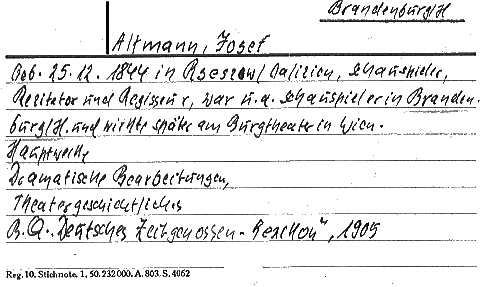 Brandenburg/H
Altmann, Josef
Geb. 25.12. 1844 in Rzeszow/Galizien, Schauspieler,
Rezitator und Regisseur, war u.a. Schauspieler in Branden-
burg/H. und wirkte später am Burgtheater in Wien.
Hauptwerke
Dramatische Bearbeitungen,
Theatergeschichtliches
B.Q. „Deutsches Zeitgenossen-Lexikon", 1905
Reg. 10. Stichnote. 1, 50. 232000. A. 803. S. 4062